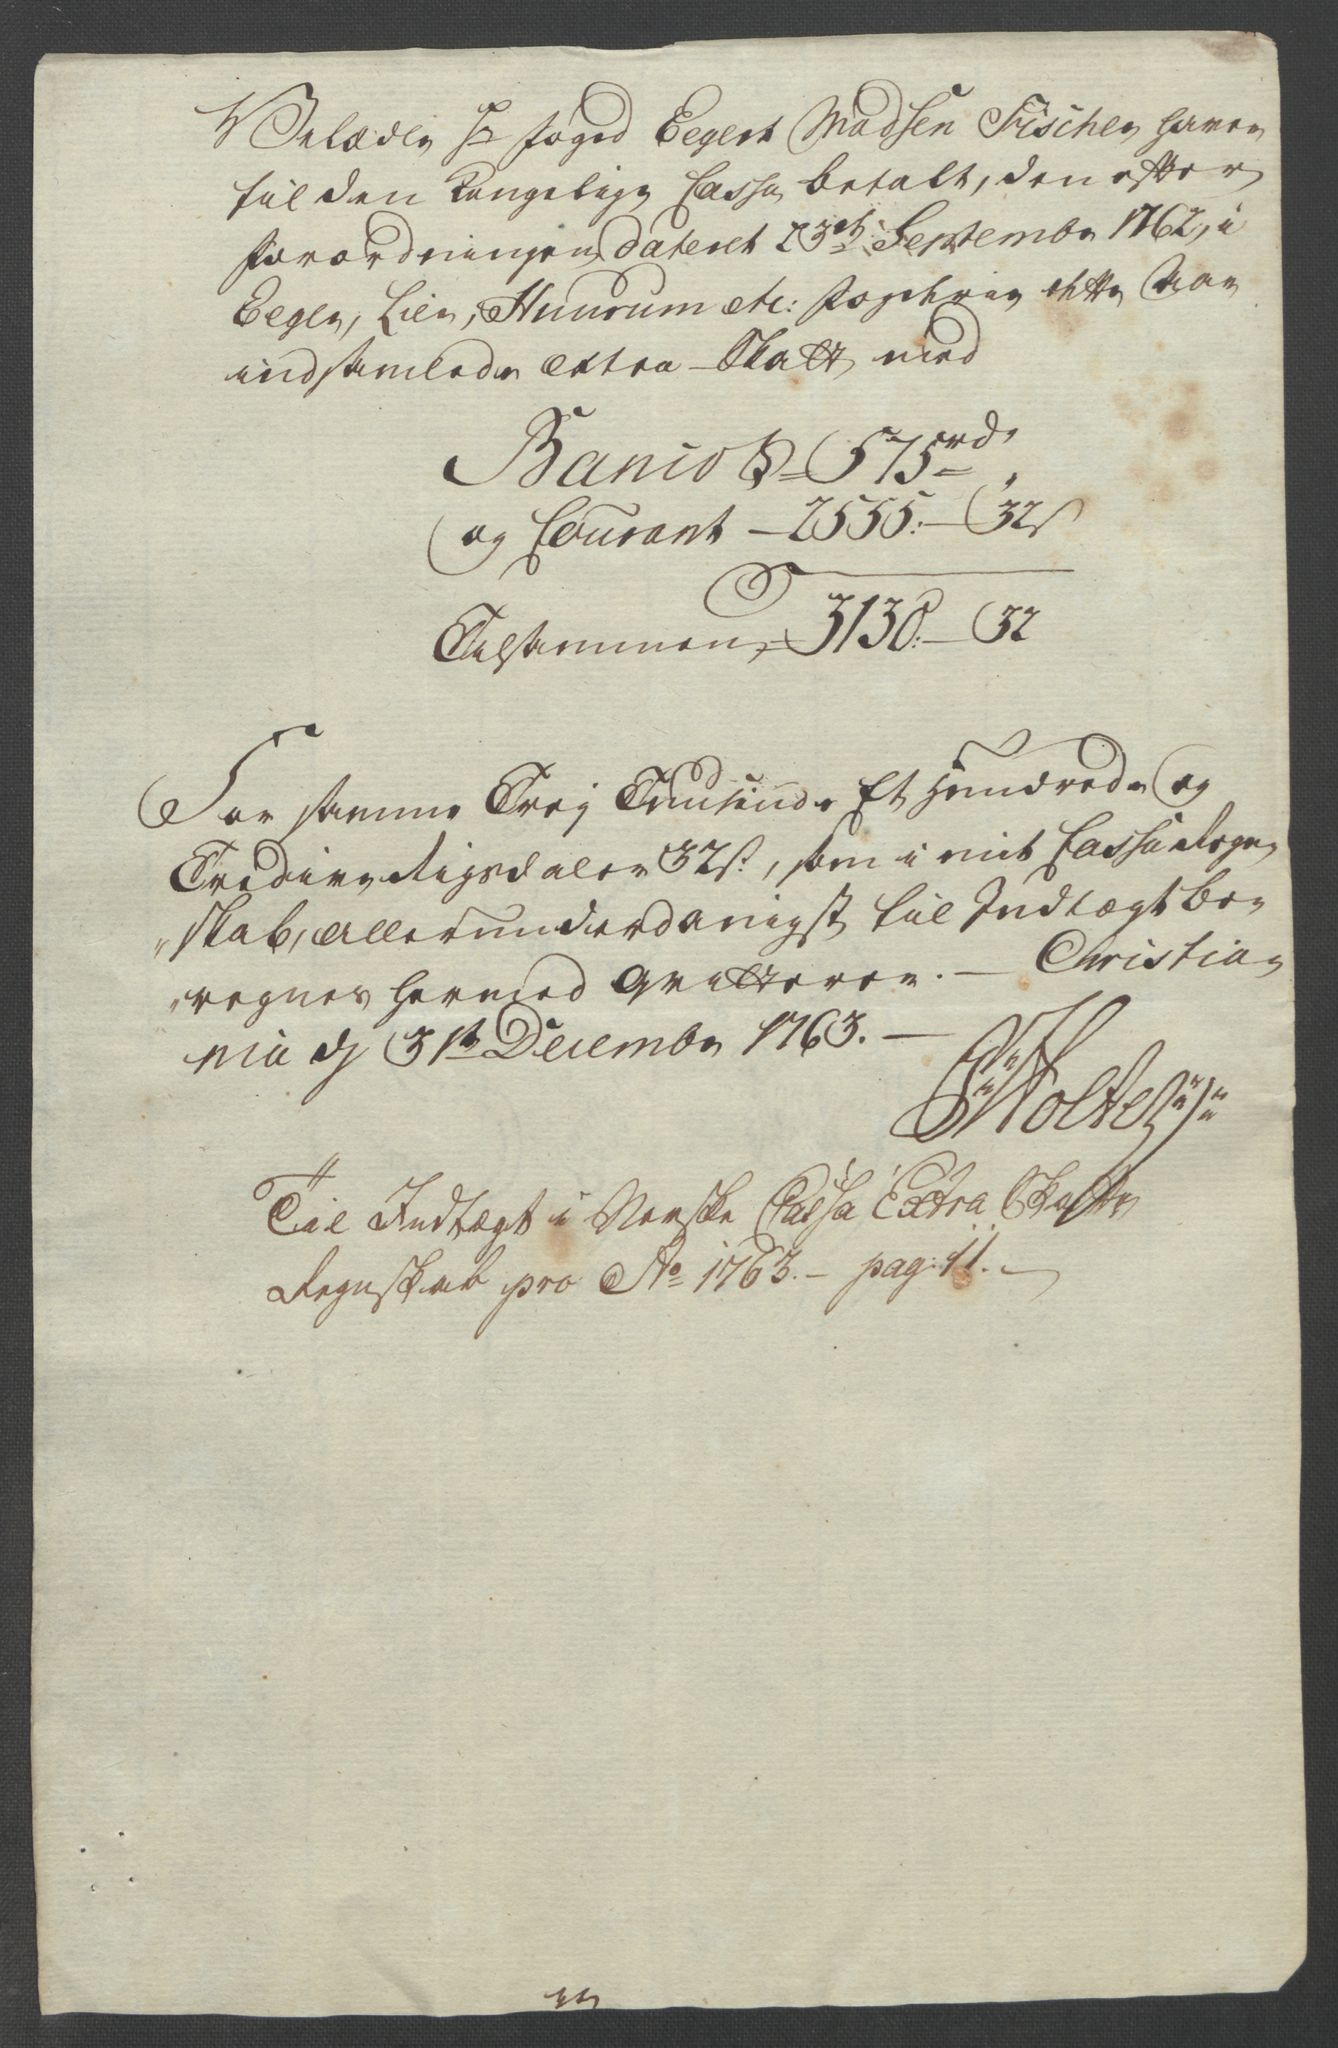 Velædle Hr Foged Eegert Madsen Fischer haver
til den Kongelige Cassa betalt, den efter
Forordningen dateret 23de Septembr 1762, i
Eeger, Lier, Huurum etc: Fogderie dette Aar
indsamlede Extra-Skatt med
Banco S. 575 rd.
og Courant - 2555:- 32 s
Tilsammen, - 3130:- 32
For samme Trej Tuusinde Et Hundrede og
Tredive Rigsdaler 32 s:, som i mit Cassa Regn-
„skab, allerunderdanigst til Indtægt be-
„regnes hermed qvitterer. - Christia-
nia d. 31te Decembr 1763. -
Holter
Til Indtægt i Norske Cassa Extra Skatte
Regnskab pro Ao 1763. - pag: 11. -